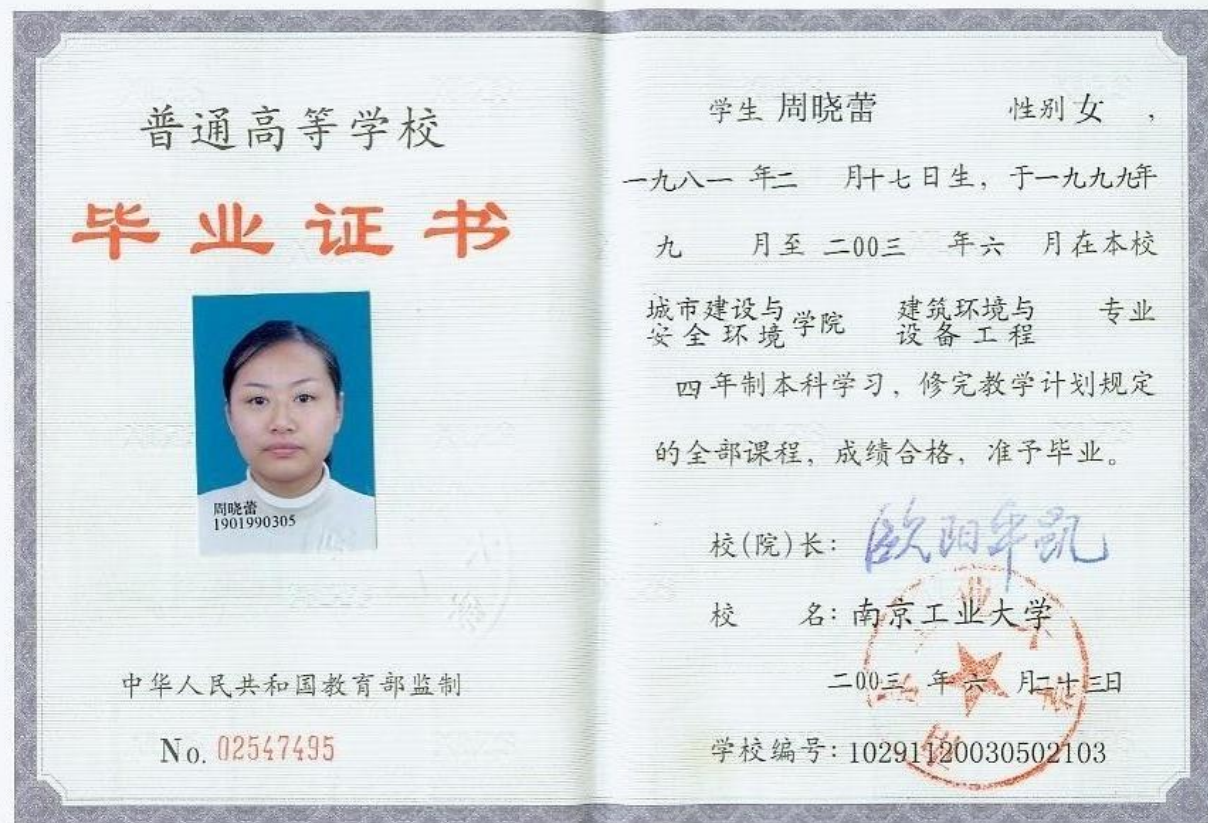 普通高等学校
毕业证书
周晓蕾
1901990305
中华人民共和国教育部监制
No. 02547495
学生 周晓蕾 性别 女 ,
一九八一 年二 月十七日生, 于一九九九年
九 月至 二00三 年六 月在本校
城市建设与安全环境 学院 建筑环境与设备工程 专业
四 年制本科学习, 修完教学计划规定
的全部课程, 成绩合格, 准予毕业。
校(院)长: 欧阳平凯
校 名: 南京工业大学
二00三 年 六 月二十三日
学校编号: 10291120030502103